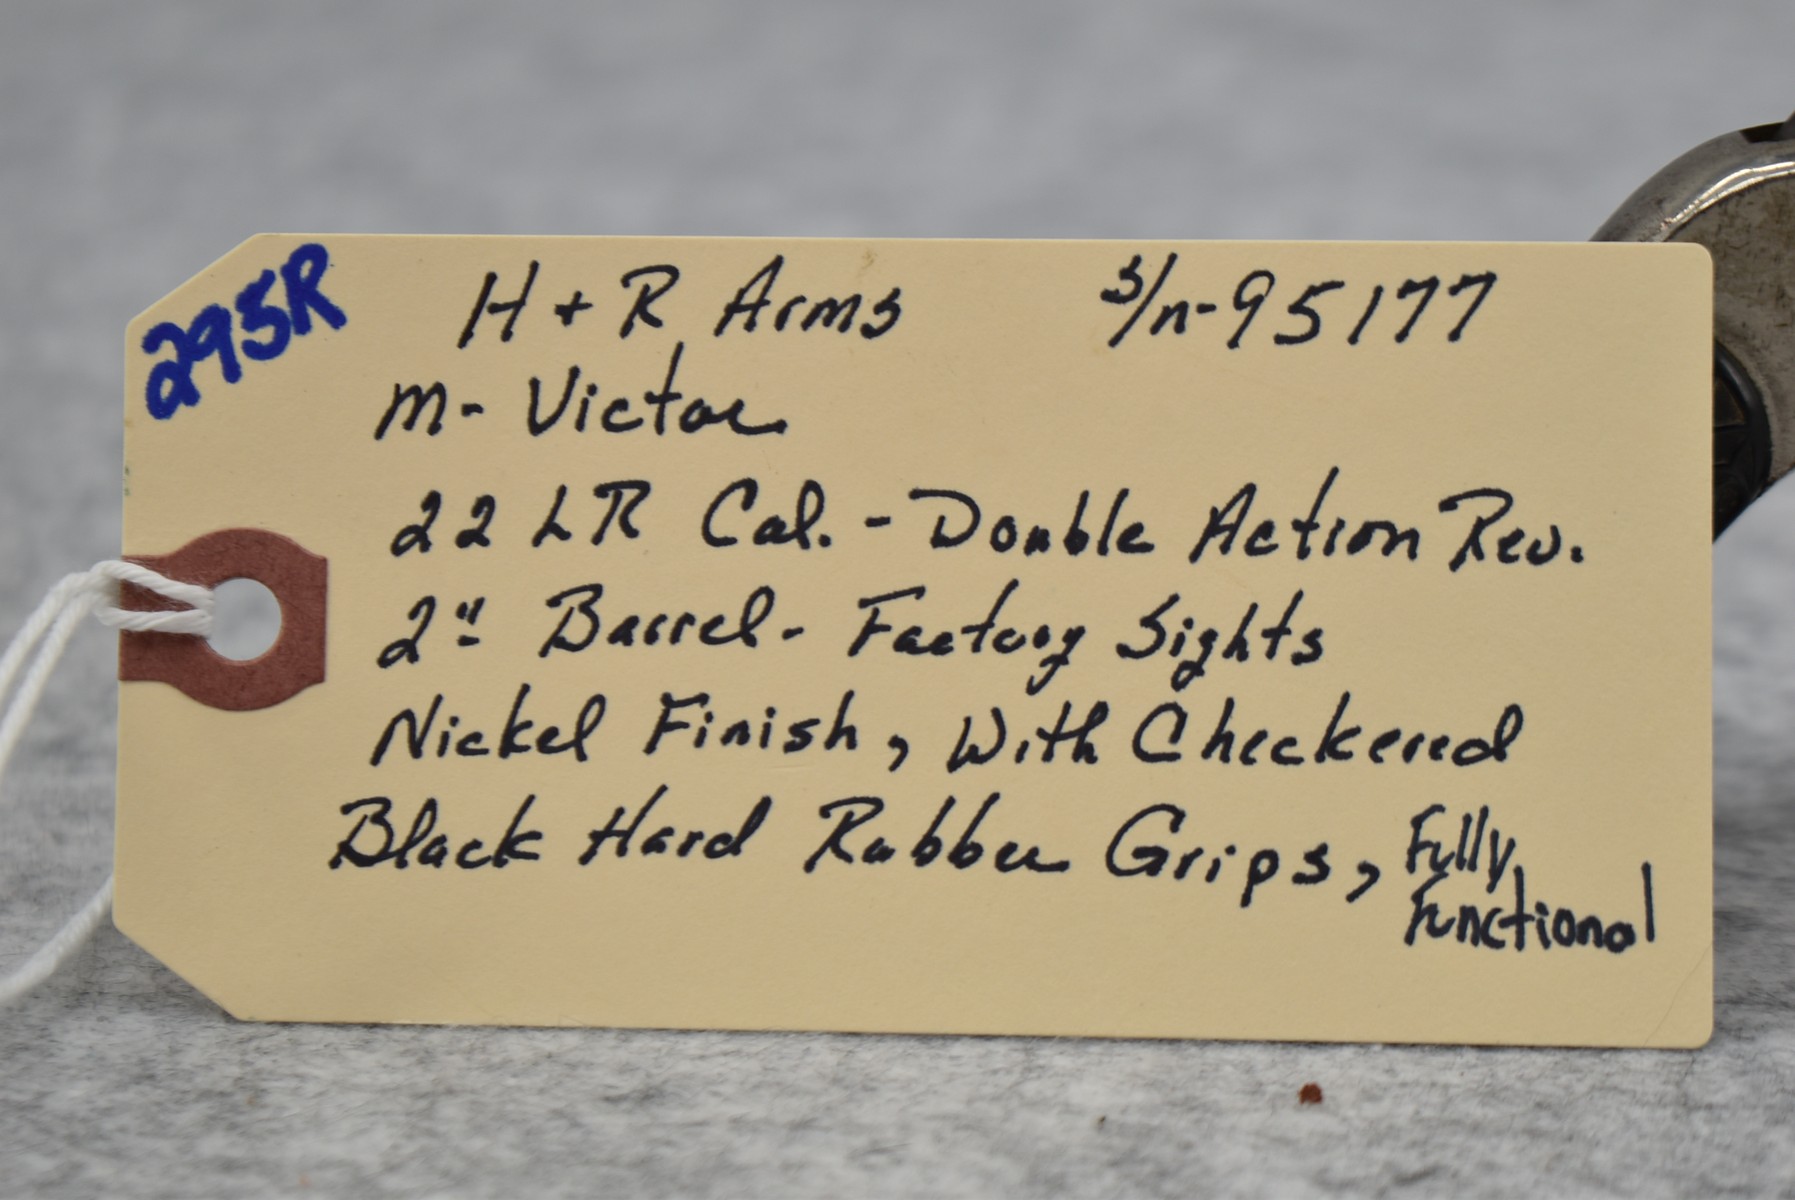 295R
H + R Arms s/n-95177
M- Victor
22 LR Cal. - Double Action Rev.
2" Barrel - Factory Sights
Nickel Finish, With Checkered
Black Hard Rubber Grips, Fully
Functional